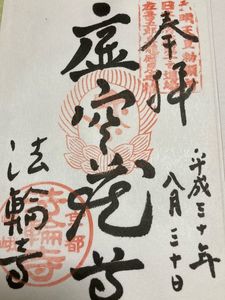 奉拝
平成三十年
八月三十日
虚空蔵尊
法輪寺